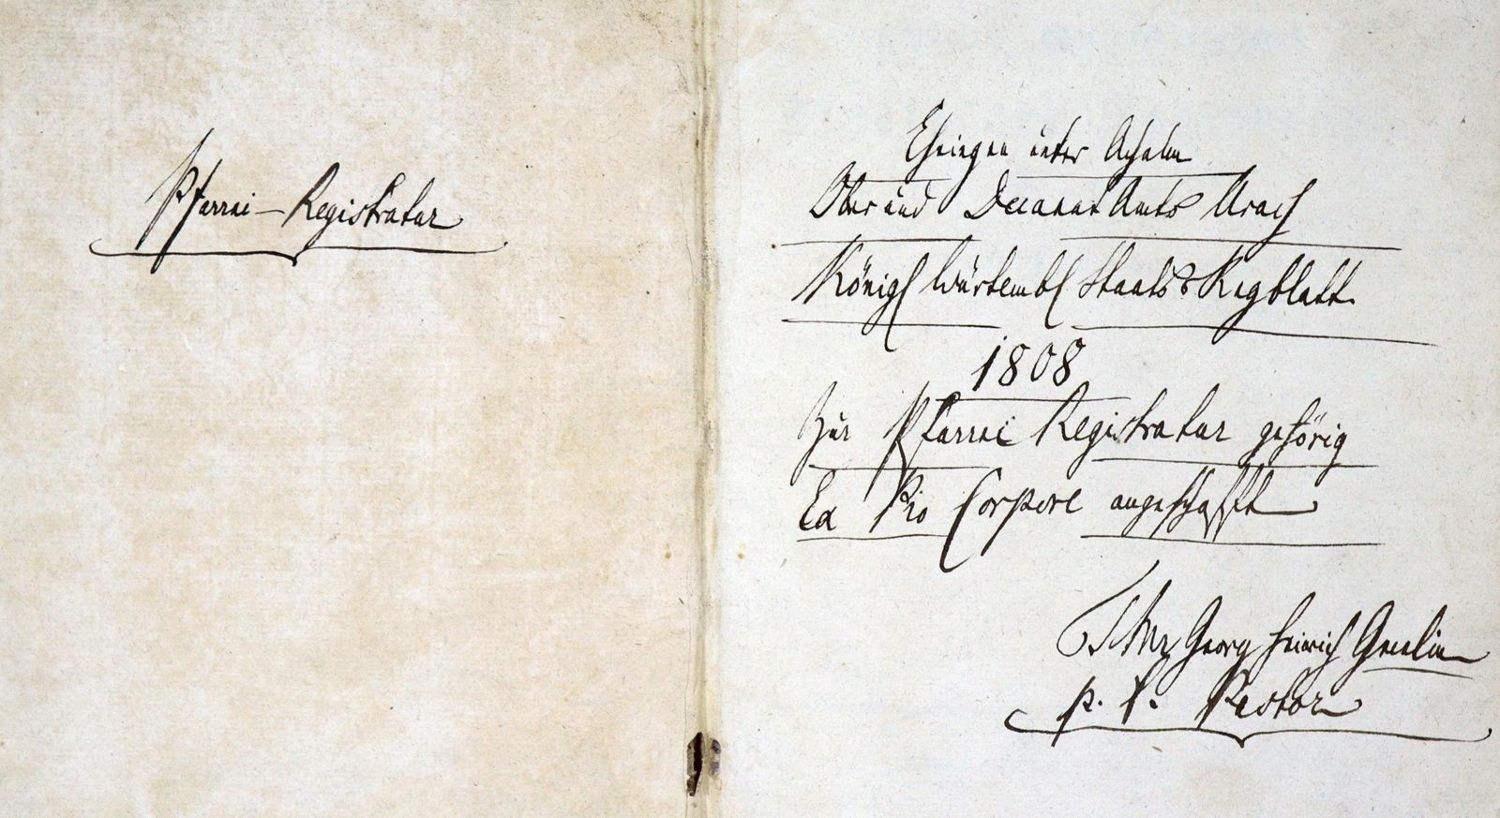 Pfarrei-Registratur
Ehningen unter Achalm
Ober und Decanat Amts Urach
Königl Würtembl Staats & Regblatt.
1808
Zur Pfarrei Registratur gehörig
Ex Pio Corpore angeschafft
Georg Heinrich Gmelin
p. t. Pastor